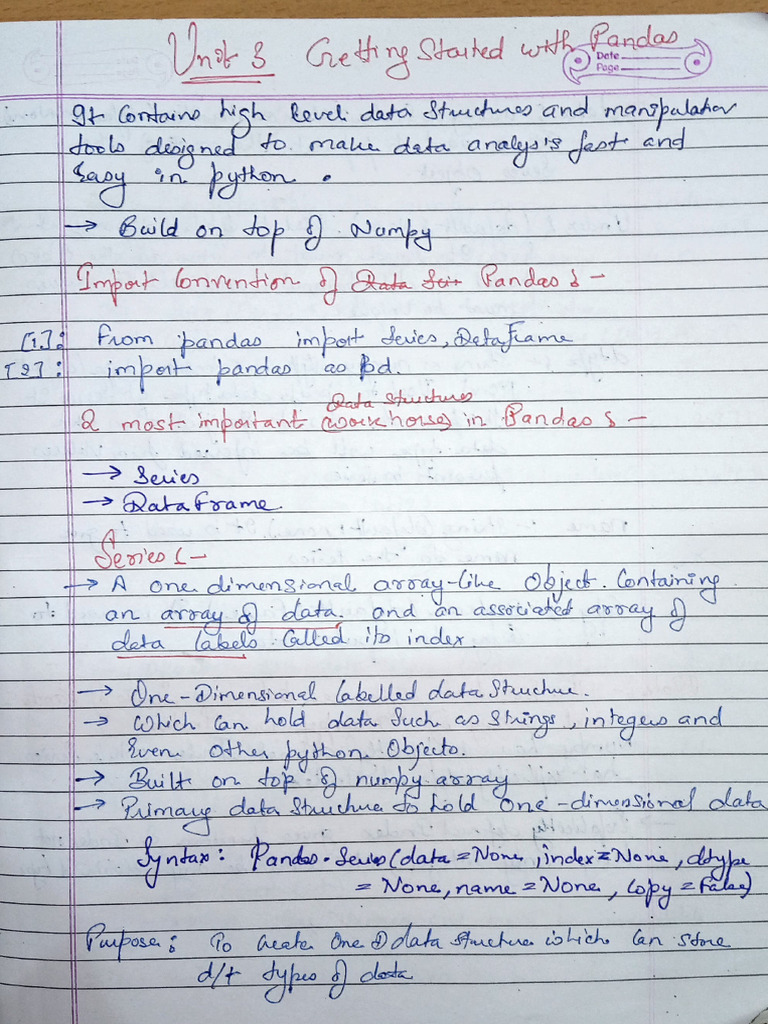 Unit 3 Getting Started with Pandas
Date
Page
It Contains high level data structures and manipulation
tools designed to make data analysis fast and
Easy in python.
→ Build on top of Numpy
Import Convention of Data Ser Pandas :-
[1]: From pandas import Series, DataFrame
[2]: import pandas as pd.
Data Structures
2 most important (workhorse) in Pandas :-
→ Series
→ DataFrame.
Series :-
→ A one dimensional array-like Object. Containing
an array of data, and an associated array of
data labels Called its index.
→ One-Dimensional Labelled data Structure.
→ Which Can hold data Such as Strings, integers and
Even Other python Objects.
→ Built on top of numpy array
→ Primary data Structure to hold One-dimensional data
Syntax: Pandas.Series(data=None, index=None, dtype
= None, name = None, Copy = False)
Purpose: To Create One D data Structure which Can Store
d/t types of data